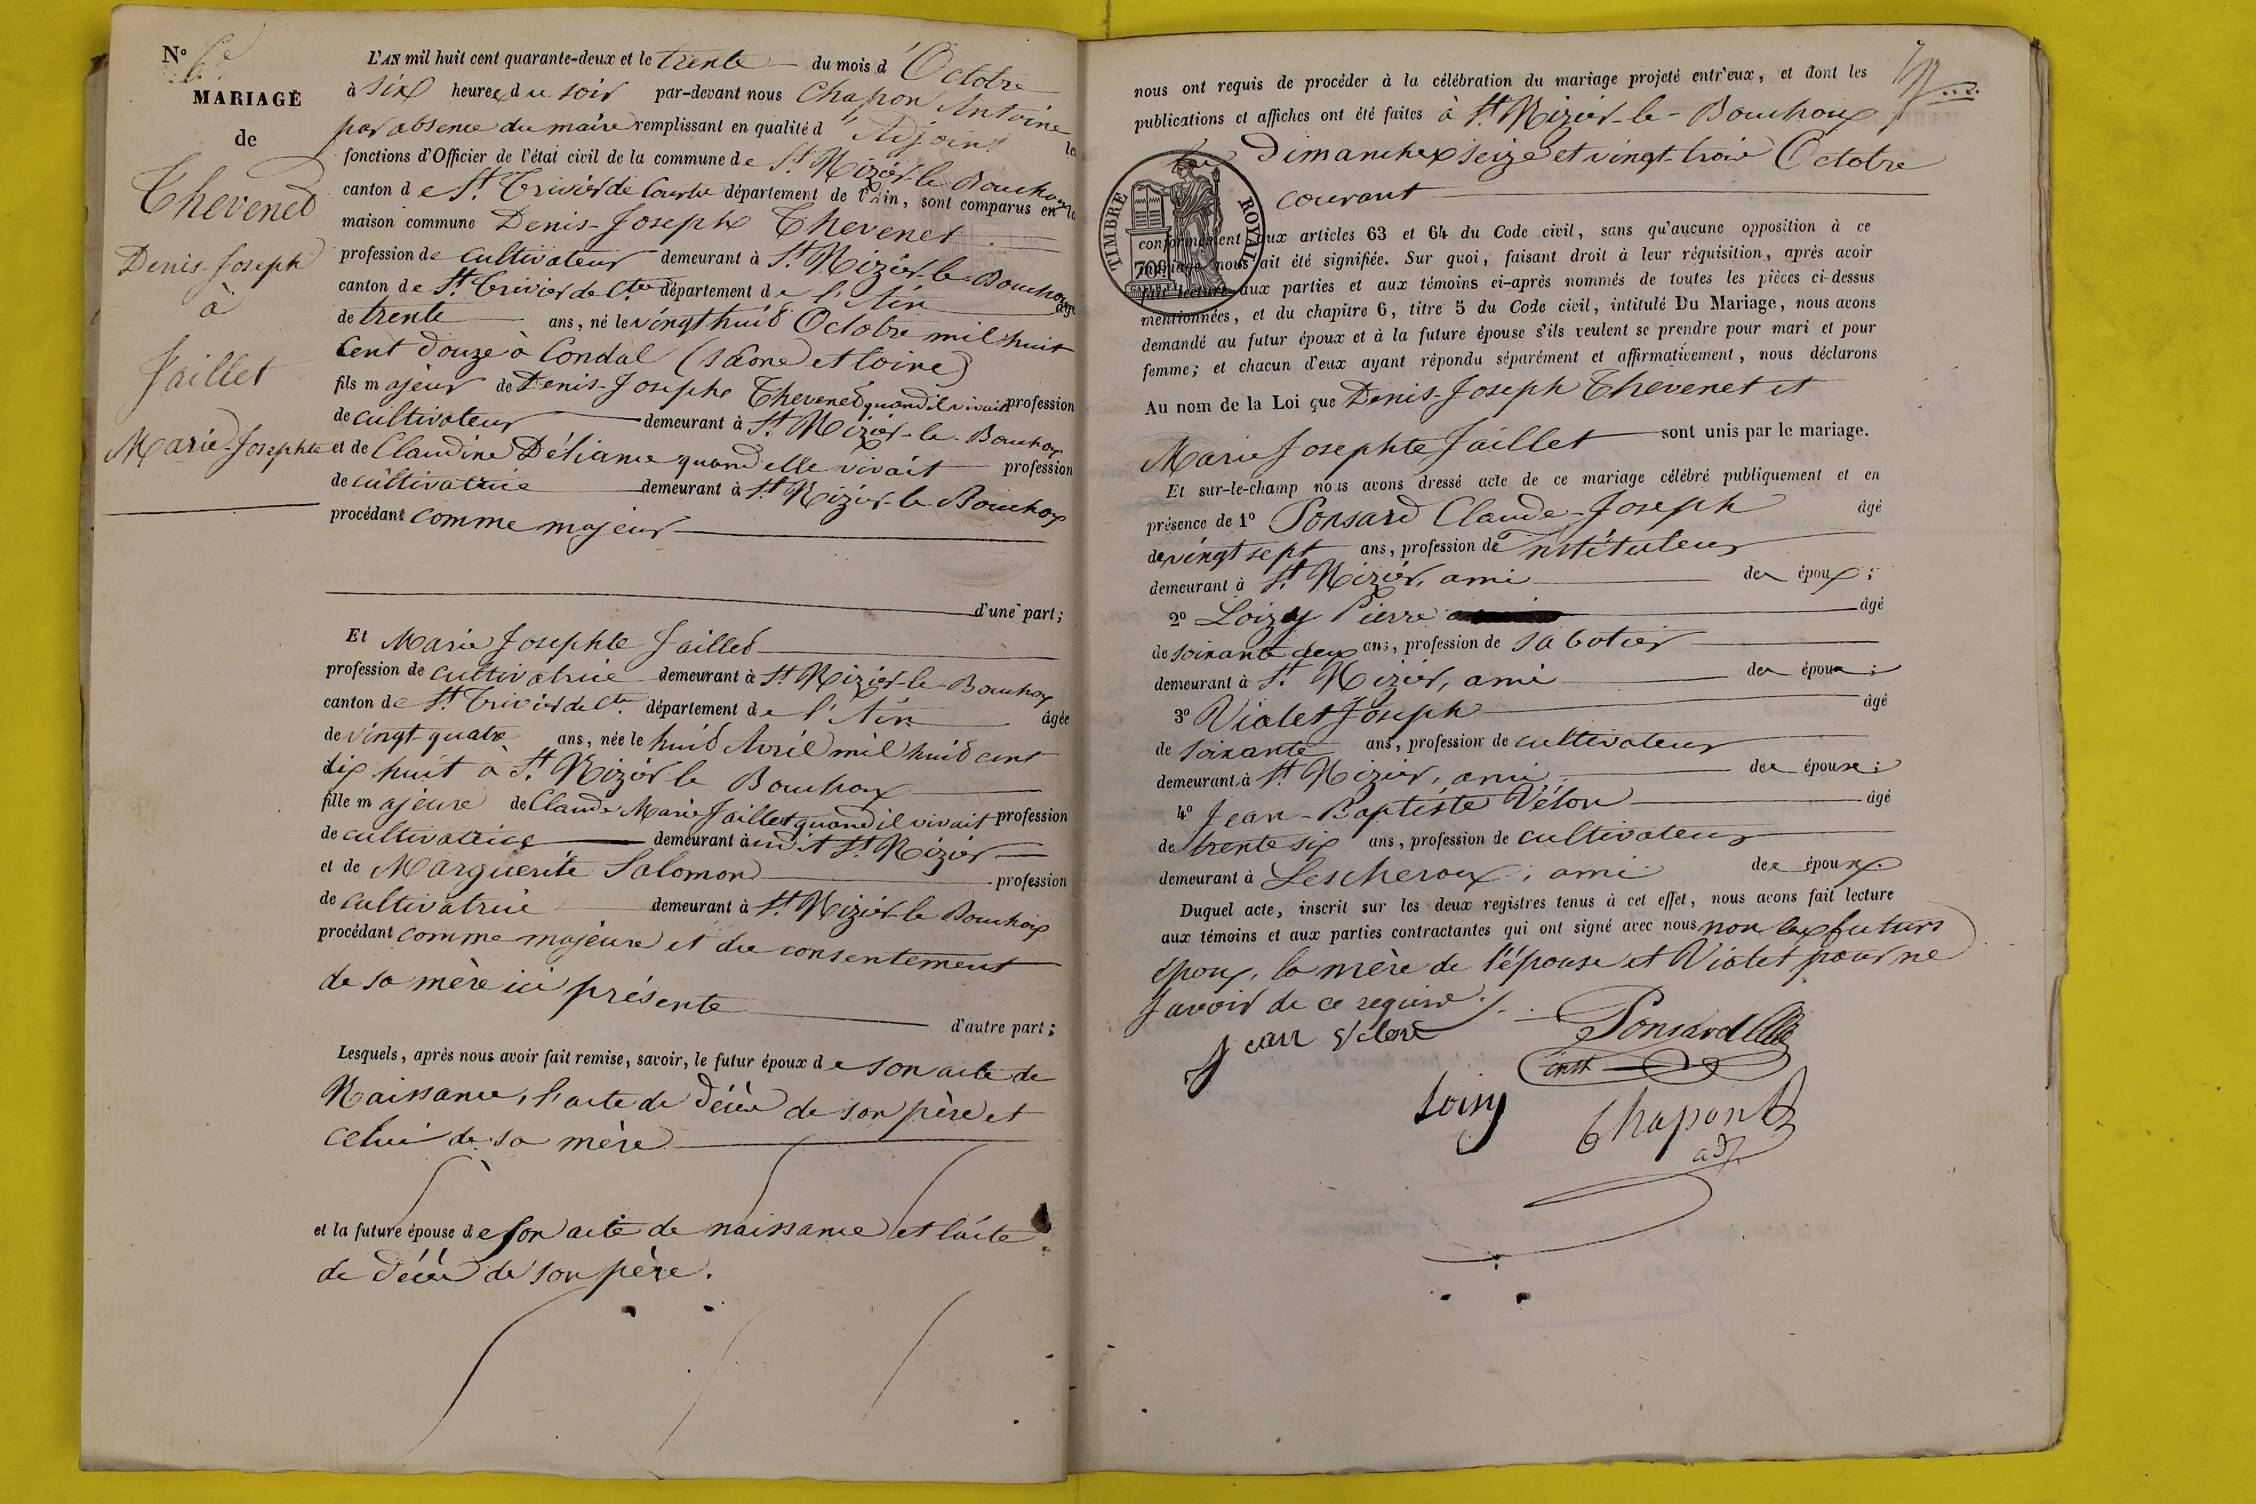 N° 6e
MARIAGE
de
Thevenet
Denis-Joseph
à
Jaillet
Marie-Josephte
L'AN mil huit cent quarante-deux et le trente du mois d'Octobre
à six heures du soir par-devant nous Chapon Antoine
par absence du maire remplissant en qualité d'Adjoint les
fonctions d'Officier de l'état civil de la commune de St Nizier-le-Bouchoux
canton de St. Trivier de Courtes département de l'Ain, sont comparus en la
maison commune Denis-Joseph Thevenet
profession de cultivateur demeurant à St. Nizier-le-Bouchoux
canton de St. Trivier de Ctes département de l'Ain âgé
de trente ans, né le vingt huit Octobre mil huit
cent douze à Condal (saone et loire)
fils majeur de Denis-Joseph Thevenet quand il vivait profession
de cultivateur demeurant à St. Nizier-le-Bouchoux
et de Claudine Déliance quand elle vivait profession
de cultivatrice demeurant à St. Nizier-le-Bouchoux
procédant comme majeur
d'une part;
Et Marie Josephte Jaillet
profession de cultivatrice demeurant à St. Nizier-le-Bouchoux
canton de St. Trivier de Ctes département de l'Ain âgée
de vingt-quatre ans, née le huit Avril mil huit cent
dix huit à St. Nizier le Bouchoux
fille majeure de Claude Marie Jaillet quand il vivait profession
de cultivatrice demeurant à udit St Nizier
et de Marguerite Salomon profession
de cultivatrice demeurant à St. Nizier-le-Bouchoux
procédant comme majeure et du consentement
de sa mère ici présente
d'autre part;
Lesquels, après nous avoir fait remise, savoir, le futur époux de son acte de
Naissance, l'acte de décès de son père et
celui de sa mère
et la future épouse de son acte de naissance et l'acte
de décès de son père.
nous ont requis de procéder à la célébration du mariage projeté entr'eux, et dont les
publications et affiches ont été faites à St. Nizier-le-Bouchoux
les Dimanches seize et vingt-trois Octobre
courant
TIMBRE ROYAL
70c
conformément aux articles 63 et 64 du Code civil, sans qu'aucune opposition à ce
mariage nous ait été signifiée. Sur quoi, faisant droit à leur réquisition, après avoir
fait lecture aux parties et aux témoins ci-après nommés de toutes les pièces ci-dessus
mentionnées, et du chapitre 6, titre 5 du Code civil, intitulé Du Mariage, nous avons
demandé au futur époux et à la future épouse s'ils veulent se prendre pour mari et pour
femme; et chacun d'eux ayant répondu séparément et affirmativement, nous déclarons
Au nom de la Loi que Denis-Joseph Thevenet et
Marie Josephte Jaillet sont unis par le mariage.
Et sur-le-champ nous avons dressé acte de ce mariage célébré publiquement et en
présence de 1° Ponsard Claude-Joseph âgé
de vingt sept ans, profession de Instituteur
demeurant à St. Nizier, ami des époux;
2° Loizy Pierre âgé
de soixante deux ans, profession de sabotier
demeurant à St. Nizier, ami des époux;
3° Violet Joseph âgé
de soixante ans, profession de cultivateur
demeurant à St. Nizier, ami des époux;
4° Jean-Baptiste Vélon âgé
de trente six ans, profession de cultivateur
demeurant à Lescheroux, ami des époux.
Duquel acte, inscrit sur les deux registres tenus à cet effet, nous avons fait lecture
aux témoins et aux parties contractantes qui ont signé avec nous non les futurs
époux, la mère de l'épouse et Violet pour ne
savoir de ce requis.
Jean Velon
Ponsard
inst
Loisy
Chapon
adj.